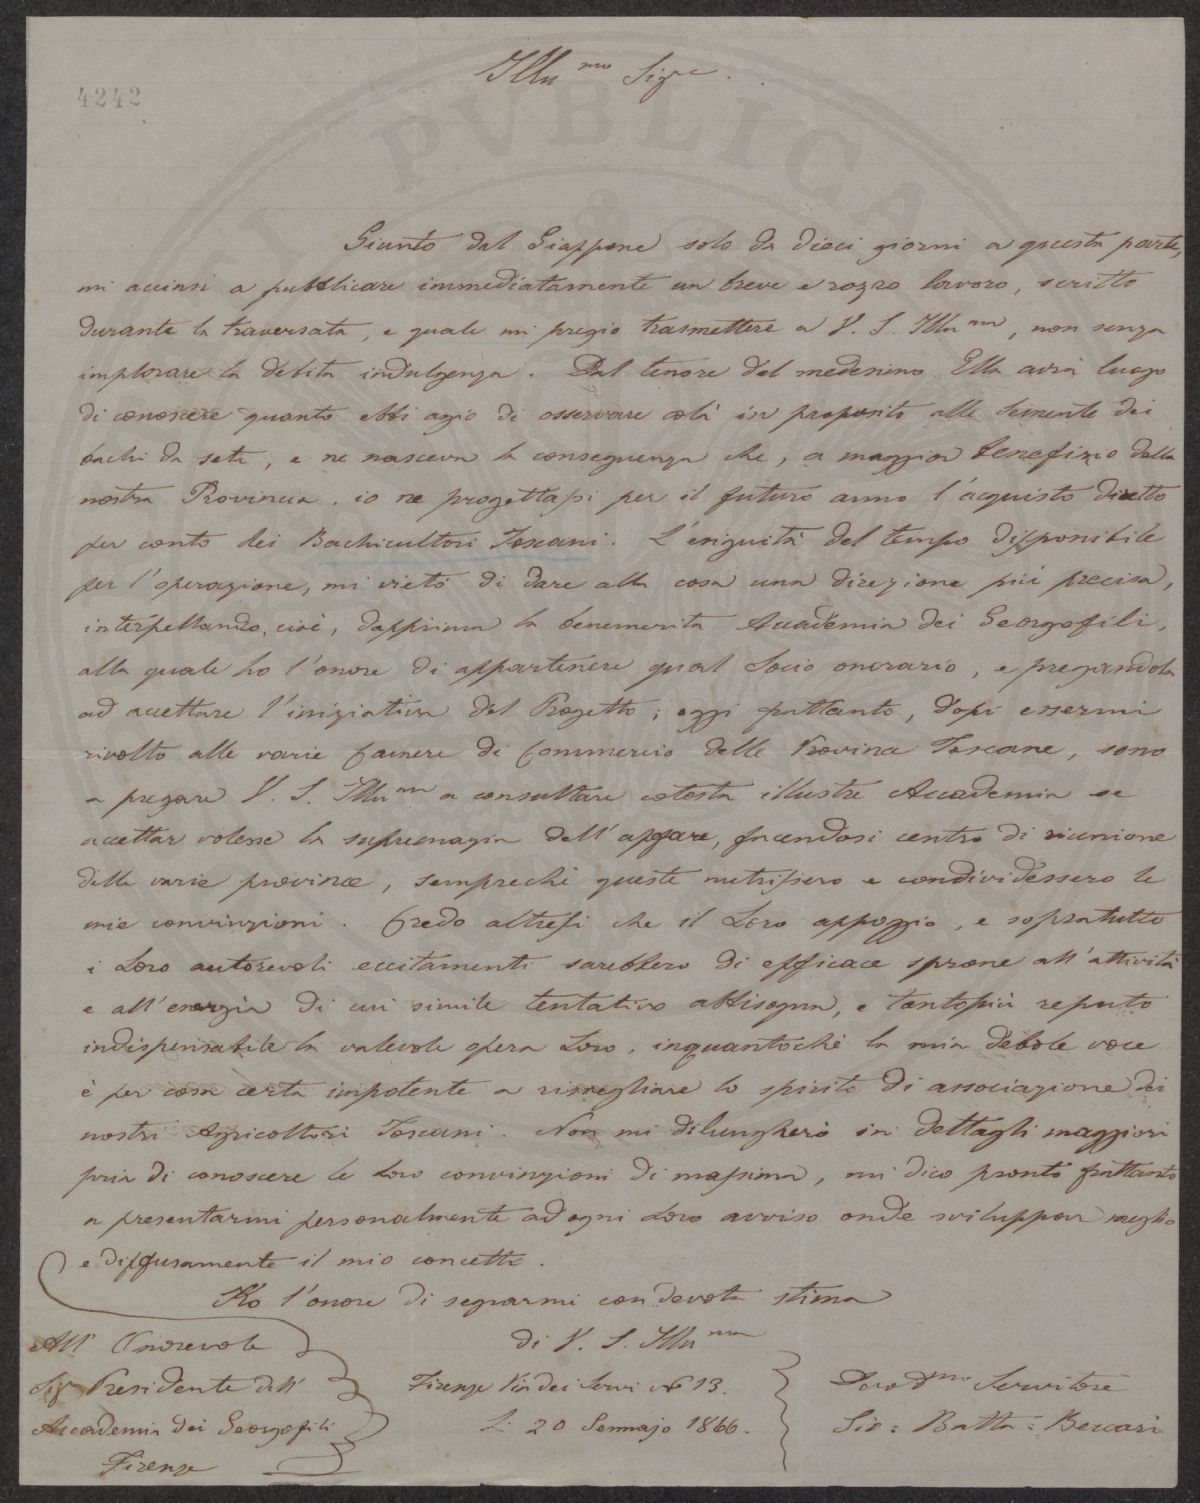 Illu.mo Sigre.
4242
PVBLICAE
Giunto dal Giappone solo da dieci giorni a questa parte,
mi accinsi a pubblicare immediatamente un breve e rozzo lavoro, scritto
durante la traversata, e quale mi pregio trasmettere a V. S. Illu.ma, non senza
implorare la debita indulgenza. Dal tenore del medesimo Ella avrà luogo
di conoscere quanto ebbi agio di osservare colà in proposito alle Semente dei
bachi da seta, e ne nasceva la conseguenza che, a maggior benefizio della
nostra Provincia, io ne progettassi per il futuro anno l'acquisto diretto
per conto dei Bachicultori Toscani. L'esiguità del tempo disponibile
per l'operazione, mi vietò di dare alla cosa una direzione più precisa,
interpellando, cioè, dapprima la benemerita Accademia dei Georgofili,
alla quale ho l'onore di appartenere qual Socio onorario, e pregandola
ad accettare l'iniziativa del Progetto; oggi frattanto, dopo essermi
rivolto alle varie Camere di Commercio delle Province Toscane, sono
a pregare V. S. Illu.ma a consultare cotesta illustre Accademia se
accettar volesse la supremazia dell'affare, facendosi centro di riunione
delle varie province, sempreché queste nutrissero e condividessero le
mie convinzioni. Credo altresì che il Loro appoggio, e sopratutto
i Loro autorevoli eccitamenti sarebbero di efficace sprone all'attività
e all'energia di cui simile tentativo abbisogna, e tantopiù reputo
indispensabile la valevole opera Loro, inquantoché la mia debole voce
è per cosa certa impotente a risvegliare lo spirito di associazione dei
nostri Agricoltori Toscani. Non mi dilungherò in dettagli maggiori
pria di conoscere le Loro convinzioni di massima, mi dico pronto frattanto
a presentarmi personalmente ad ogni Loro avviso onde sviluppar meglio
e diffusamente il mio concetto.
Ho l'onore di segnarmi con devota stima
di V. S. Illu.ma
All' Onorevole
Sigr Presidente dell'
Accademia dei Georgofili
Firenze
Firenze Via dei Servi No 13.
Li 20 Gennajo 1866.
Devo dmo Servitore
Gio: Batta: Beccari